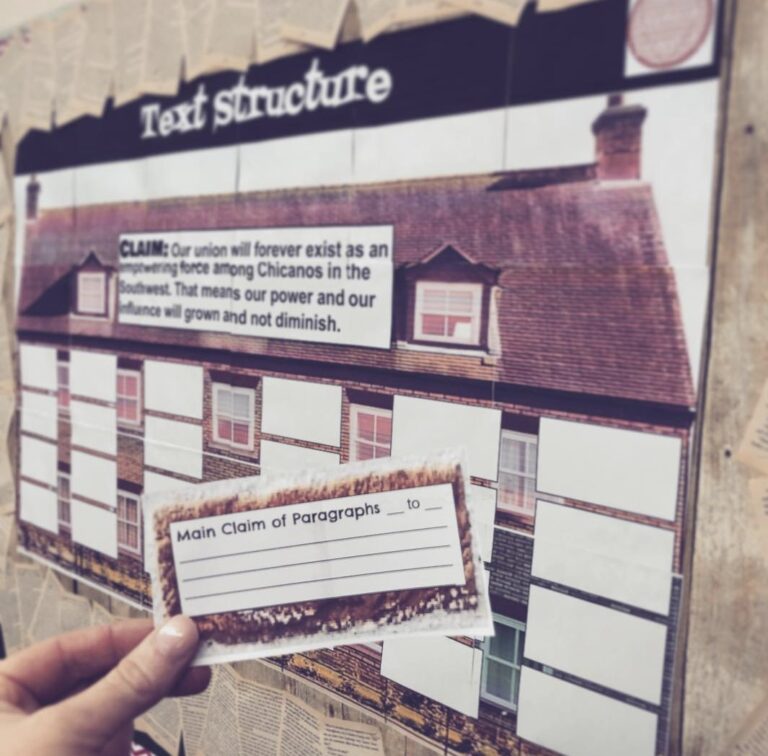 Text structure
CLAIM: Our union will forever exist as an
emptwering force among Chicanos in the
Southwest. That means our power and our
influence will grown and not diminish.
Main Claim of Paragraphs __ to __